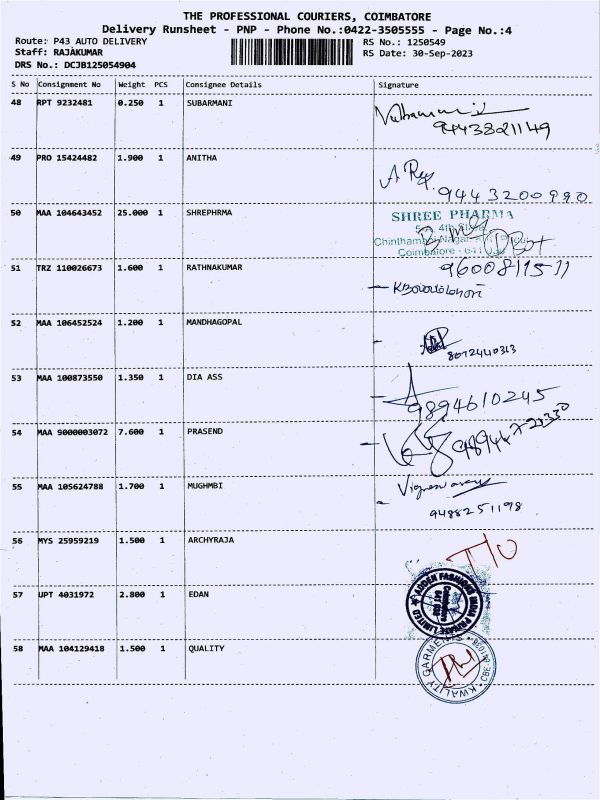 THE PROFESSIONAL COURIERS, COIMBATORE
Delivery Runsheet - PNP - Phone No.:0422-3505555 - Page No.:4
Route: P43 AUTO DELIVERY RS No.: 1250549
Staff: RAJAKUMAR RS Date: 30-Sep-2023
DRS No.: DCJB125054904
S No Consignment No Weight PCS Consignee Details Signature
48 RPT 9232481 0.250 1 SUBARMANI
9443821149
49 PRO 15424482 1.900 1 ANITHA
9443200990
50 MAA 104643452 25.000 1 SHREPHRMA SHREE PHARMA
Coimbatore
51 TRZ 110026673 1.600 1 RATHNAKUMAR 9600811511
52 MAA 106452524 1.200 1 MANDHAGOPAL
8072440313
53 MAA 100873550 1.350 1 DIA ASS
9894610245
54 MAA 9000003072 7.600 1 PRASEND
55 MAA 105624788 1.700 1 MUGHMBI
9488251198
56 MYS 25959219 1.500 1 ARCHYRAJA
57 UPT 4031972 2.800 1 EDAN ADDEN FASHIONS INDIA PRIVATE LIMITED
58 MAA 104129418 1.500 1 QUALITY KWALITY GARMENTS